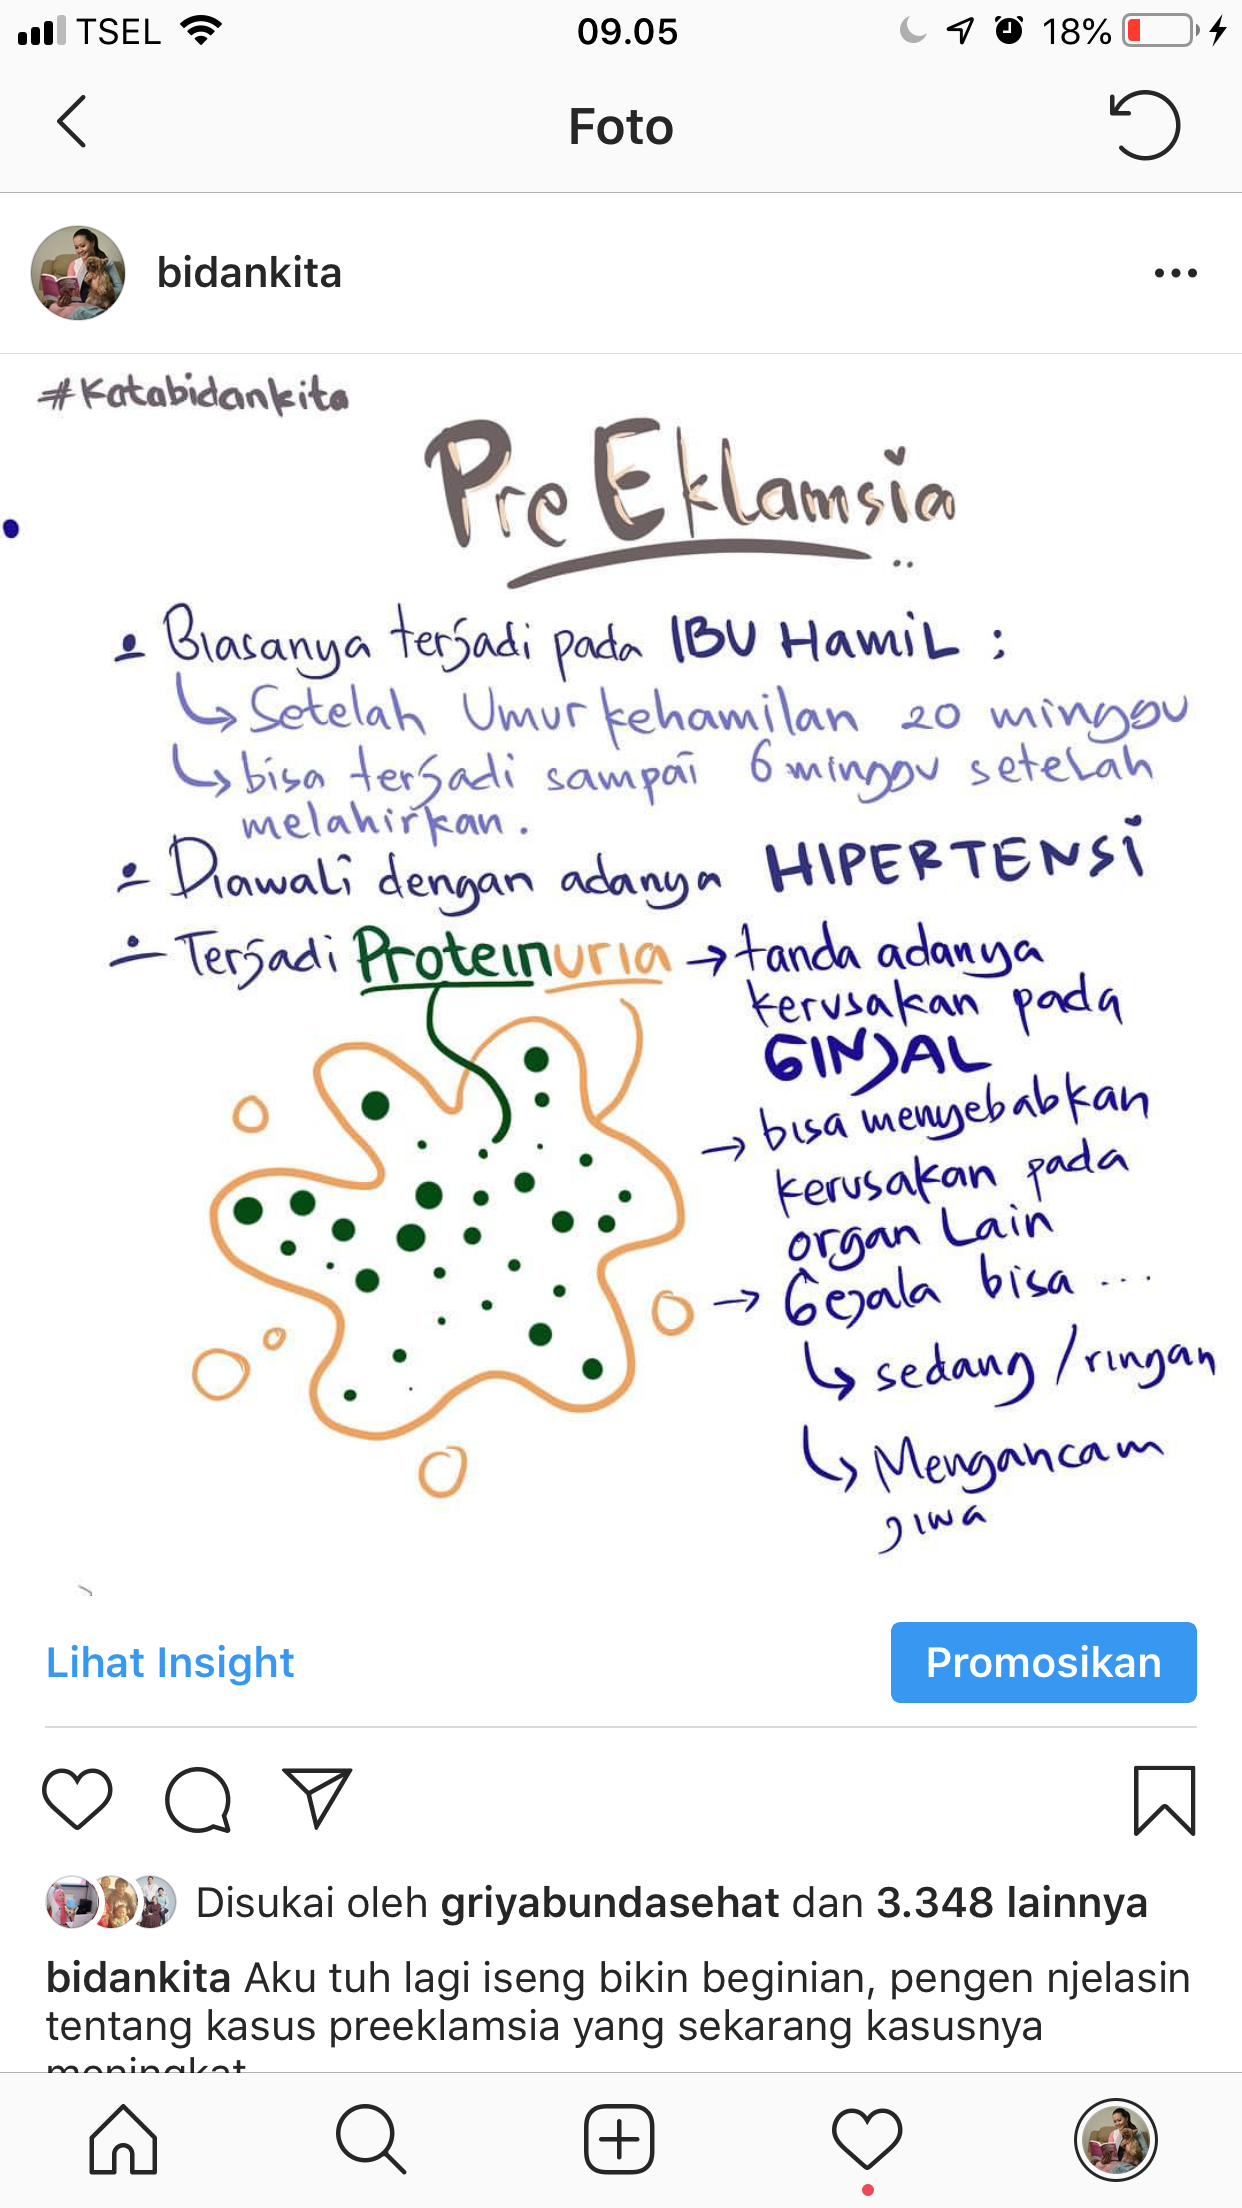 TSEL 09.05 18%
Foto
bidankita
#Katabidankita
PreEklamsia
Biasanya terjadi pada IBU HamiL :
Setelah Umur kehamilan 20 minggu
bisa terjadi sampai 6 minggu setelah
melahirkan.
Diawali dengan adanya HIPERTENSi
Terjadi Proteinuria → tanda adanya
kerusakan pada
GINJAL
→ bisa menyebabkan
kerusakan pada
organ Lain
→ Gejala bisa ...
sedang / ringan
Mengancam
jiwa
Lihat Insight
Promosikan
Disukai oleh griyabundasehat dan 3.348 lainnya
bidankita Aku tuh lagi iseng bikin beginian, pengen njelasin
tentang kasus preeklamsia yang sekarang kasusnya
meningkat